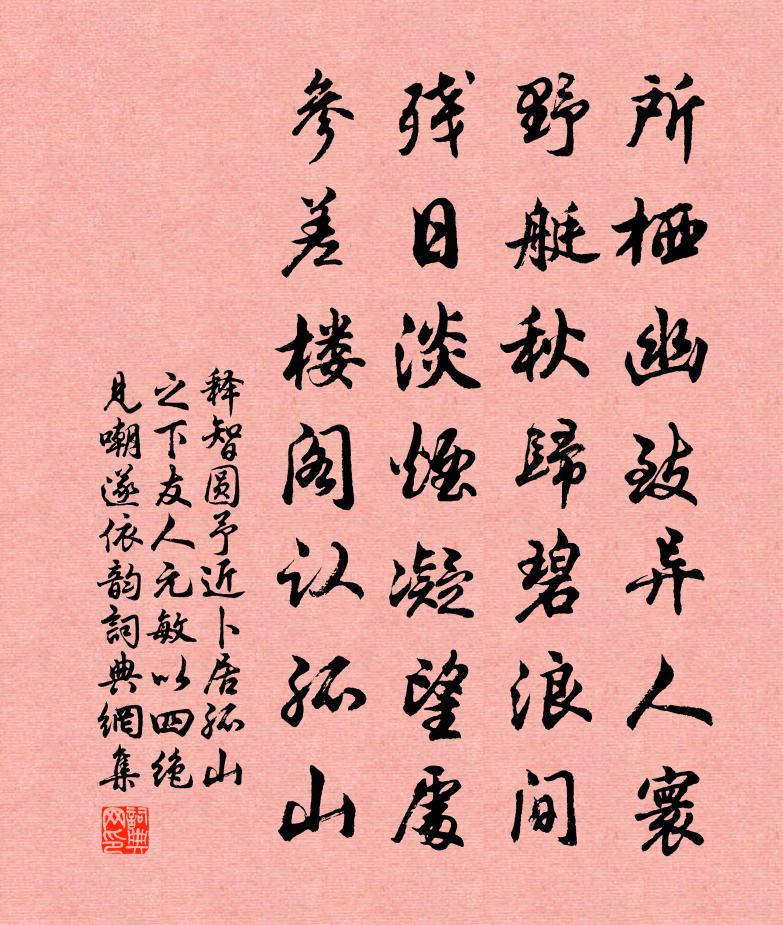 所栖幽致异人寰
野艇秋歸碧浪间
残日淡煙凝望處
參差楼阁认孤山
释智圆予近卜居孤山
之下友人元敏以四绝
见嘲遂依韵詞典網集
詞典网印